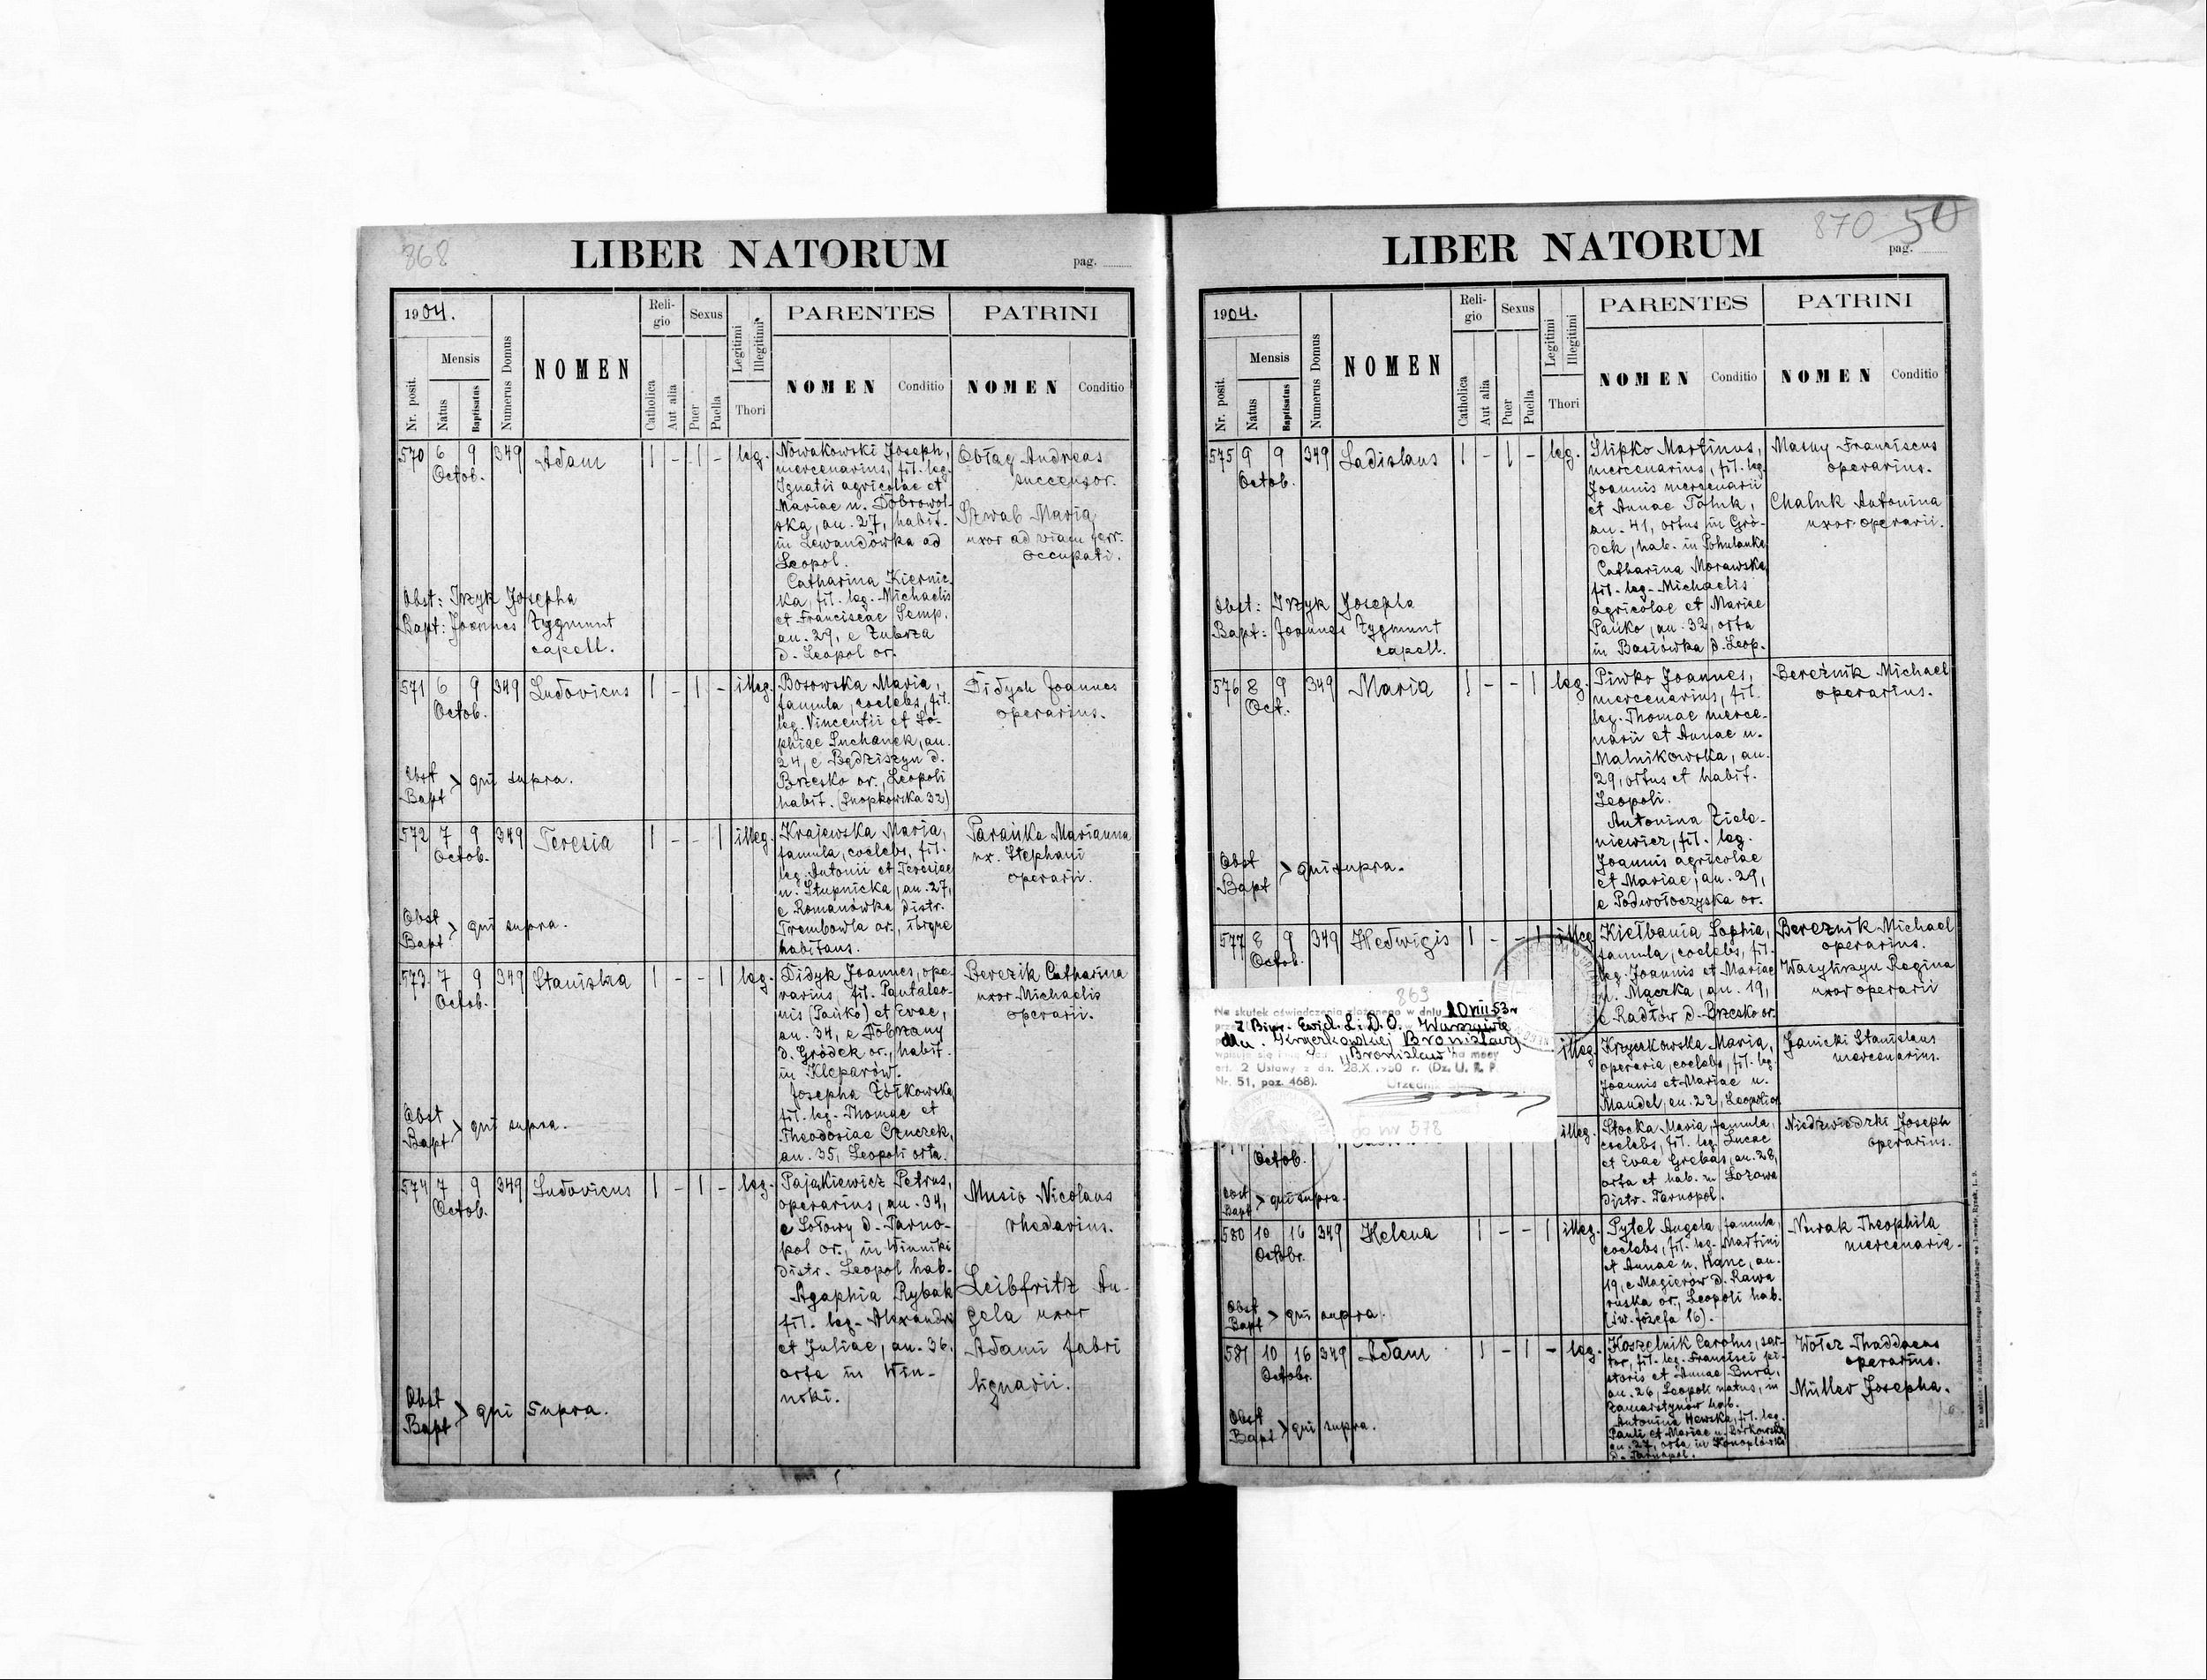 868
LIBER NATORUM
pag.
1904.
Mensis
Nr. posit.
Natus
Baptisatus
Numerus Domus
NOMEN
Reli-
gio
Catholica
Aut alia
Sexus
Puer
Puella
Legitimi
Illegitimi
Thori
PARENTES
NOMEN
Conditio
PATRINI
NOMEN
Conditio
570 6 9 349 Adam 1 - 1 - leg.
Octob.
Nowakowski Joseph,
mercenarius, fil. leg.
Ignatii agricolae et
Mariae n. Dobrowol-
ska, an. 27, habit.
in Lewandówka ad
Leopol.
Catharina Kiernic-
ka, fil. leg. Michaelis
et Franciscae Semp.
an. 29, e Zubrza
d. Leopol or.
Obłąg Andreas
successor.
Szwab Maria
uxor ad viam ferr.
occupati.
Obst: Irzyk Josepha
Bapt: Joannes Zygmunt
capell.
571 6 9 349 Ludovicus 1 - 1 - illeg.
Octob.
Bosowska Maria,
famula, coelebs, fil.
leg. Vincentii et So-
phiae Suchanek, an.
24, e Będziszyn d.
Brzesko or., Leopoli
habit. (Snopkowska 32)
Didych Joannes
operarius.
Obst
Bapt > qui supra.
572 7 9 349 Teresia 1 - - 1 illeg.
Octob.
Krajewska Maria,
famula, coelebs, fil.
leg. Antonii et Teresiae
n. Stupnicka, an. 27,
e Romanówka distr.
Trembowla or., ibique
habitans.
Parańka Marianna
ux. Stephani
operarii.
Obst
Bapt > qui supra.
573 7 9 349 Stanislaa 1 - - 1 leg.
Octob.
Didyk Joannes, ope-
rarius, fil. Pantaleo-
nis (Pańko) et Evae,
an. 34, e Dobrzany
d. Gródek or., habit.
in Kleparów.
Josepha Żółkowska
fil. leg. Thomae et
Theodosiae Czuczek,
an. 35, Leopoli orta.
Berezik Catharina
uxor Michaelis
operarii.
Obst
Bapt > qui supra.
574 7 9 349 Ludovicus 1 - 1 - leg.
Octob.
Pająkiewicz Petrus,
operarius, an. 34,
e Łozowy d. Tarno-
pol or., in Winniki
distr. Leopol hab.
Agaphia Rybak
fil. leg. Alexandri
et Juliae, an. 36.
orta in Win-
niki.
Musio Nicolaus
rhedarius.
Leibfritz An-
gela uxor
Adami fabri
lignarii.
Obst
Bapt > qui supra.
870 50
LIBER NATORUM
pag.
1904.
Mensis
Nr. posit.
Natus
Baptisatus
Numerus Domus
NOMEN
Reli-
gio
Catholica
Aut alia
Sexus
Puer
Puella
Legitimi
Illegitimi
Thori
PARENTES
NOMEN
Conditio
PATRINI
NOMEN
Conditio
575 9 9 349 Ladislaus 1 - 1 - leg.
Octob.
Slipko Martinus,
mercenarius, fil. leg.
Joannis mercenarii
et Annae Tołuk,
an. 41, ortus in Gró-
dek, hab. in Pohulanka
Catharina Morawska
fil. leg. Michaelis
agricolae et Mariae
Pańko, an. 32, orta
in Basiówka d. Leop.
Masny Franciscus
operarius.
Chaluk Antonina
uxor operarii.
Obst: Irzyk Josepha
Bapt: Joannes Zygmunt
capell.
576 8 9 349 Maria 1 - - 1 leg.
Oct.
Piwko Joannes,
mercenarius, fil.
leg. Thomae merce-
narii et Annae n.
Malnikowska, an.
29, ortus et habit.
Leopoli.
Antonina Ziele-
niewicz, fil. leg.
Joannis agricolae
et Mariae, an. 29,
e Podwołoczyska or.
Bereżnik Michael
operarius.
Obst
Bapt > qui supra.
577 8 9 349 Hedwigis 1 - - 1 illeg.
Octob.
Kiełbania Sophia,
famula, coelebs, fil.
leg. Joannis et Mariae
n. Mączka, an. 19,
e Radłów d. Brzesko or.
Bereżnik Michael
operarius.
Wasyliszyn Regina
uxor operarii
869
Na skutek oświadczenia złożonego w dniu 20 VIII 53 r
z Biur. Ewid. L. i D. O. Warszawie
dla Krzyczkowskiej Bronisławy
"Bronisław" na mocy
art. 2 Ustawy z dn. 28.X.1950 r. (Dz. U. R. P.
Nr. 51, poz. 468).
do nr 578
illeg.
Krzyczkowska Maria,
operaria, coelebs, fil. leg.
Joannis et Mariae n.
Mandel, an. 22, Leopoli or.
Janicki Stanislaus
mercenarius.
Octob.
illeg.
Stocka Maria, famula,
coelebs, fil. leg. Lucae
et Evae Grebas, an. 28,
orta et hab. in Łozowa
distr. Tarnopol.
Niedźwiedzki Joseph
operarius.
Obst
Bapt > qui supra.
580 10 16 349 Helena 1 - - 1 illeg.
Octobr.
Pytel Angela, famula,
coelebs, fil. leg. Martini
et Annae n. Hanc, an.
19, e Magierów d. Rawa
ruska or., Leopoli hab.
(św. Józefa 16).
Nowak Theophila
mercenaria.
Obst
Bapt > qui supra.
581 10 16 349 Adam 1 - 1 - leg.
Octobr.
Koszelnik Carolus, sar-
tor, fil. leg. Francisci pi-
storis et Annae Bura,
an. 26, Leopoli natus, in
Zamarstynów hab.
Antonina Hewska, fil. leg.
Pauli et Mariae n. Borkowska
an. 27, orta in Konopkówka
d. Tarnopol.
Wołcz Thaddaeus
operarius.
Müller Josepha.
Obst
Bapt > qui supra.